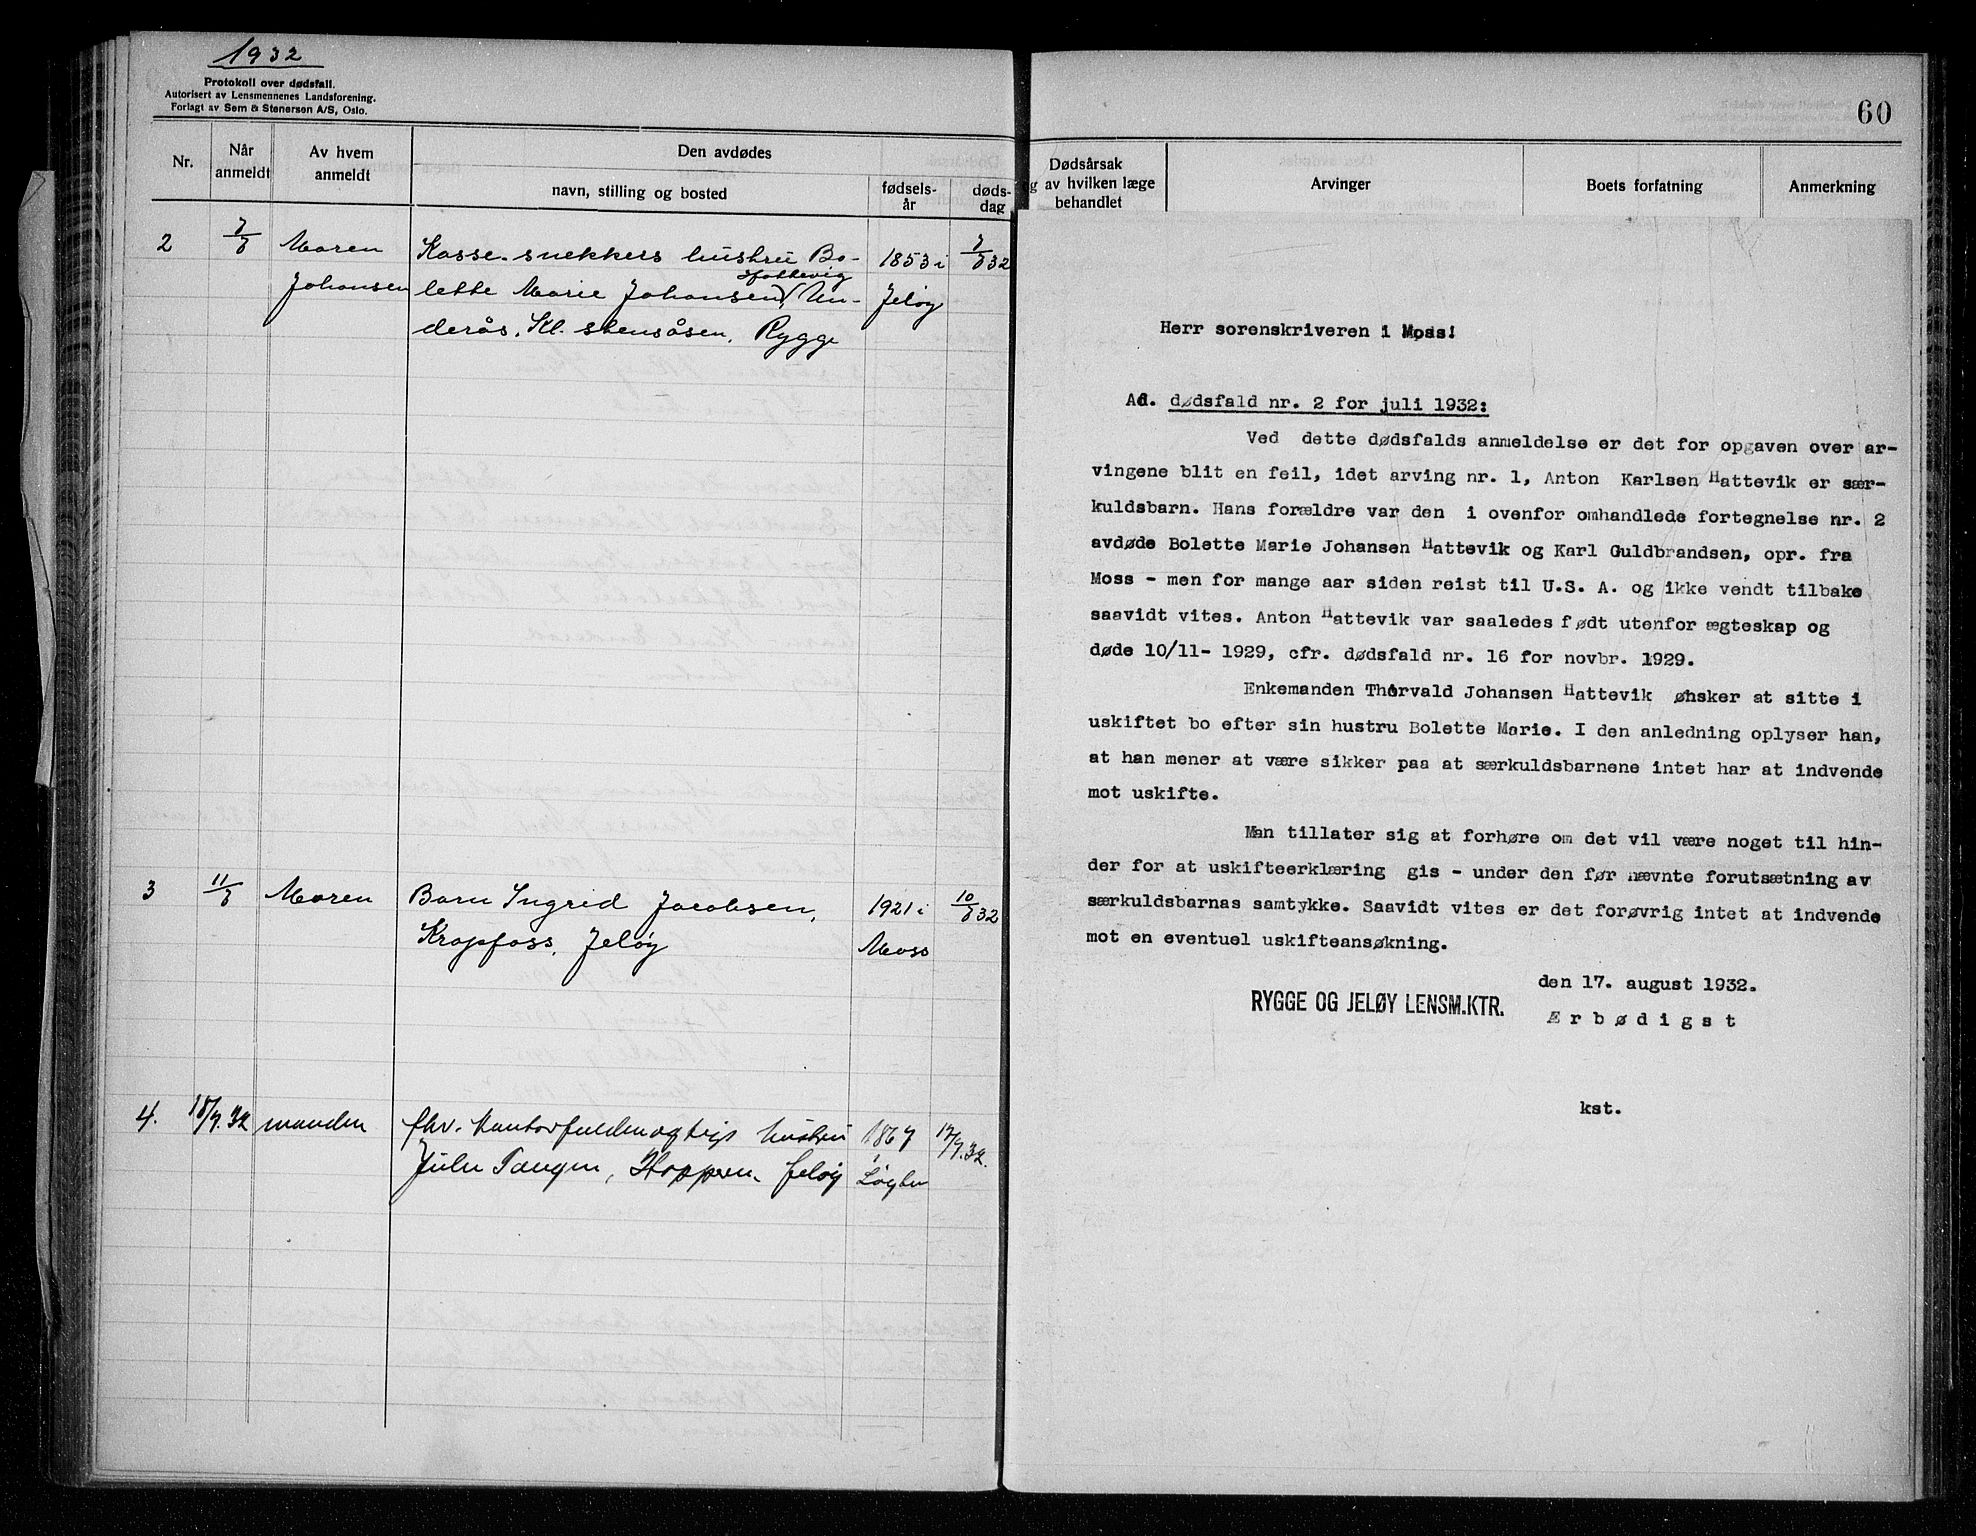 1932
Protokoll over dødsfall.
Autorisert av Lensmennenes Landsforening.
Forlagt av Sem & Stenersen A/S, Oslo.
Nr.
Når anmeldt
Av hvem anmeldt
Den avdødes
navn, stilling og bosted
fødsels-år
døds-dag
2
Maren
Johansen
Kasse-snekkers hustru Bo-
Hattevig
lette Marie Johansen, Un-
derås. Kl. stensåsen, Rygge
1853 i
Jeløy
3
Maren
Barn Ingrid Jacobsen,
Kropfoss, Jeløy
1921 i
Moss
4.
18/7.32
manden
fhv. Kontorfuldmægtigs hustru
Julie Tangen, Hoppern. Jeløy
17/7.32.
60
Dødsårsak
og av hvilken læge
behandlet
Arvinger
Boets forfatning
Anmerkning
Herr sorenskriveren i Moss!
Ad. dødsfald nr. 2 for juli 1932:
Ved dette dødsfalds anmeldelse er det for opgaven over ar-
vingene blit en feil, idet arving nr. 1, Anton Karlsen Hattevik er sær-
kuldsbarn. Hans forældre var den i ovenfor omhandlede fortegnelse nr. 2
avdøde Bolette Marie Johansen Hattevik og Karl Guldbrandsen, opr. fra
Moss - men for mange aar siden reist til U.S. A. og ikke vendt tilbake
saavidt vites. Anton Hattevik var saaledes født utenfor ægteskap og
døde 10/11- 1929, cfr. dødsfald nr. 16 for novbr. 1929.
Enkemanden Thorvald Johansen Hattevik ønsker at sitte i
uskiftet bo efter sin hustru Bolette Marie. I den anledning oplyser han,
at han mener at være sikker paa at særkuldsbarnene intet har at indvende
mot uskifte.
Man tillater sig at forhøre om det vil være noget til hin-
der for at uskifteerklæring gis - under den før nævnte forutsætning av
særkuldsbarnas samtykke. Saavidt vites er det forøvrig intet at indvende
mot en eventuel uskifteansøkning.
den 17. august 1932.
RYGGE OG JELØY LENSM.KTR.
Ærbødigst
kst.